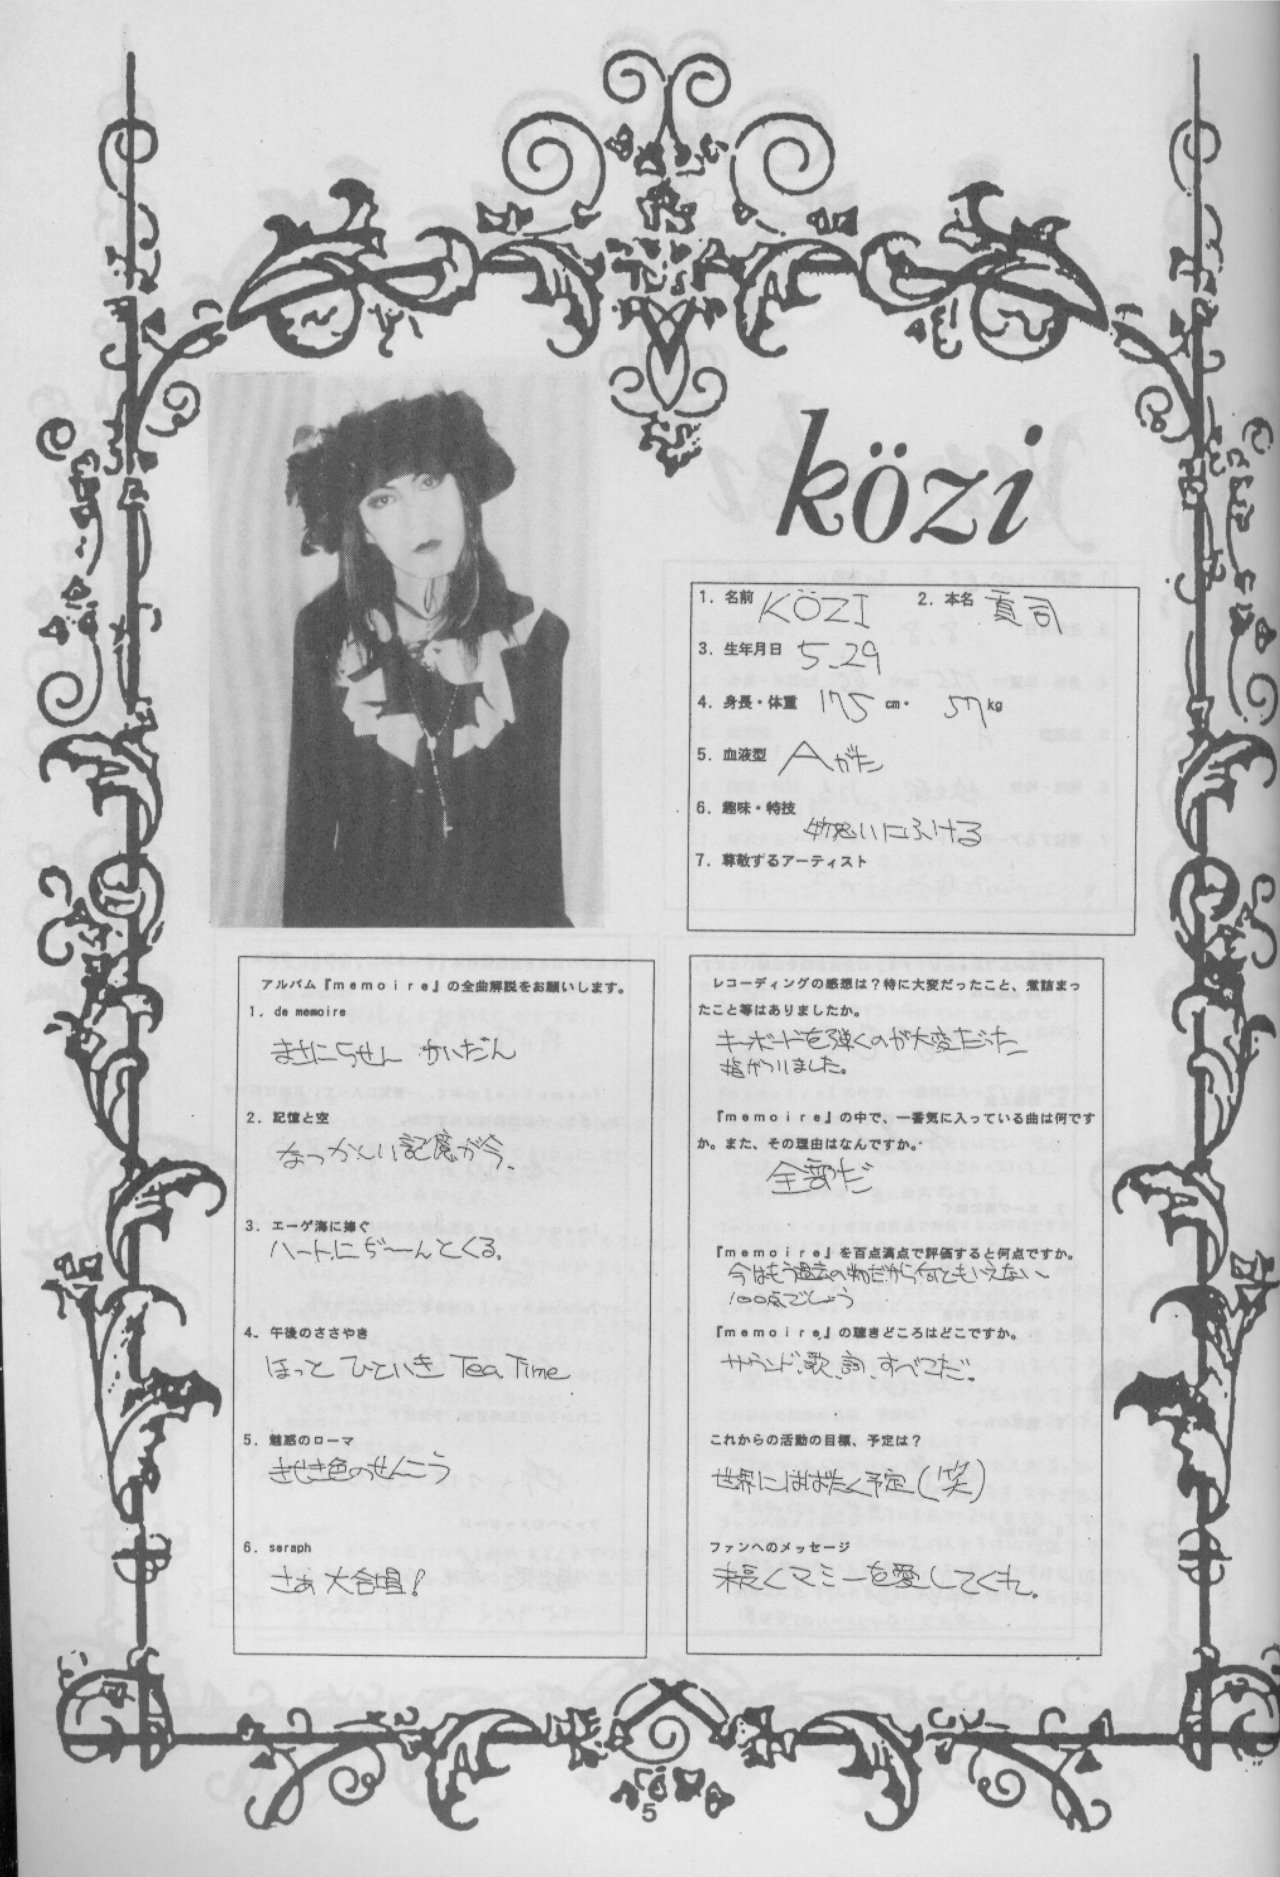 közi
1. 名前 KÖZI 2. 本名 貢司
3. 生年月日 5.29
4. 身長・体重 175 cm・ 57 kg
5. 血液型 Aがた
6. 趣味・特技
物思いにふける
7. 尊敬するアーティスト
アルバム『memoire』の全曲解説をお願いします。
1. de memoire
まさにらせん かいだん
2. 記憶と空
なつかしい記憶が今、
3. エーゲ海に捧ぐ
ハートにぢ〜んとくる。
4. 午後のささやき
ほっと ひといき Tea Time
5. 魅惑のローマ
きせき色のせんこう
6. seraph
さぁ大合唱!
レコーディングの感想は?特に大変だったこと、煮詰まっ
たこと等はありましたか。
キーボードを弾くのが大変だった
指がつりました。
『memoire』の中で、一番気に入っている曲は何です
か。また、その理由はなんですか。
全部だ
『memoire』を百点満点で評価すると何点ですか。
今はもう過去の物だから何ともいえない〜
100点でしょう
『memoire』の聴きどころはどこですか。
サウンド、歌、詞、すべてだ。
これからの活動の目標、予定は?
世界にはばたく予定(笑)
ファンへのメッセージ
末長くマミーを愛してくれ。
5